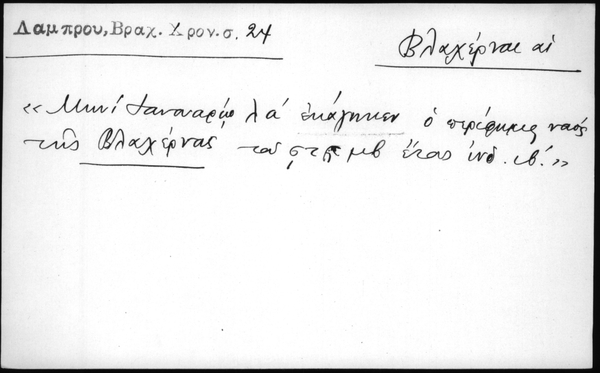 Λαμπρου, Βραχ. Χρον. σ. 24
Βλαχέρναι αἱ
«Μηνὶ Ιανουαρίῳ λα΄ ἐκάγηκεν ὁ περίφημος ναός
τῆς Βλαχέρνας τοῦ ϛ μβ ἔτος ἰνδ. ιβ΄.»